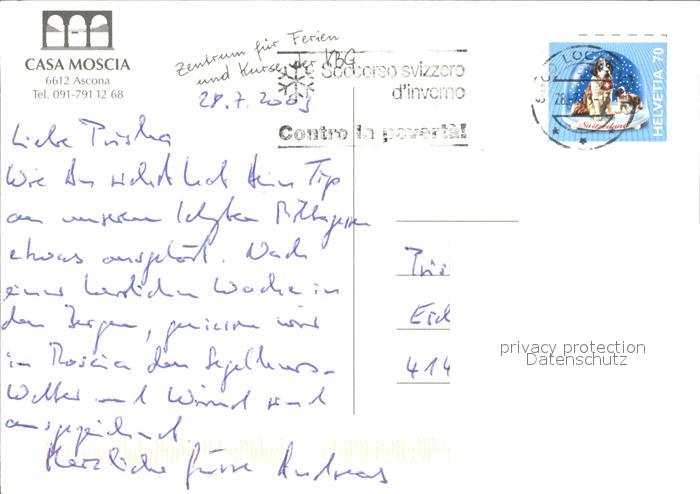 CASA MOSCIA
6612 Ascona
Tel. 091-791 12 68
Zentrum für Ferien
und Kurse der VBG
28.7.2003
Soccorso svizzero
d'inverno
Contro la povertà!
HELVETIA 70
Switzerland
Liebe Priska
Wie Du siehst hat Dein Tip
an unserem letzten Mittagessen
etwas ausgelöst. Nach
einer herrlichen Woche in
den Bergen, geniessen wir
in Moscia den Segelkurs.
Wetter und Wind sind
ausgezeichnet.
Herzliche Grüsse Andreas
Pris
414
privacy protection
Datenschutz